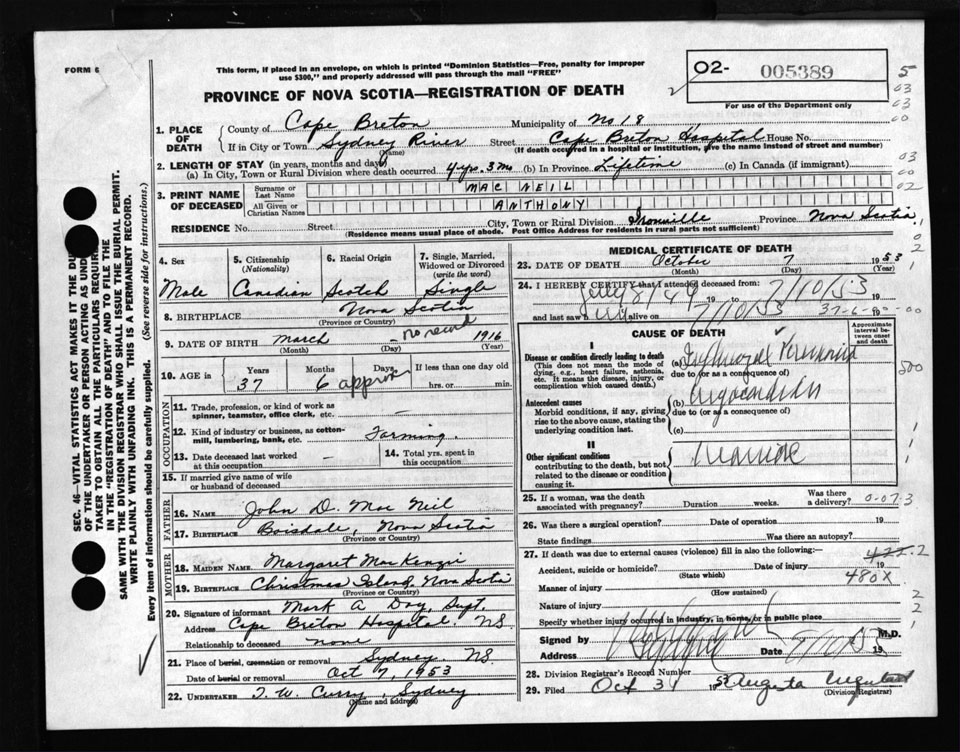 FORM 6
This form, if placed in an envelope, on which is printed "Dominion Statistics—Free, penalty for improper
use $300," and properly addressed will pass through the mail "FREE"
PROVINCE OF NOVA SCOTIA—REGISTRATION OF DEATH
02- 005389
For use of the Department only
5
03
03
00
03
00
02
1. PLACE OF DEATH
County of Cape Breton Municipality of No 18
If in City or Town Sydney River Street Cape Breton Hospital House No.
(Name) (If death occurred in a hospital or institution, give the name instead of street and number)
2. LENGTH OF STAY (in years, months and days)
(a) In City, Town or Rural Division where death occurred 4 yr. 3 m (b) In Province Lifetime (c) In Canada (if immigrant)
3. PRINT NAME OF DECEASED
Surname or Last Name MAC NEIL
All Given or Christian Names ANTHONY
RESIDENCE No. Street City, Town or Rural Division Ironville Province Nova Scotia
(Residence means usual place of abode. Post Office Address for residents in rural parts not sufficient)
4. Sex Male
5. Citizenship (Nationality) Canadian
6. Racial Origin Scotch
7. Single, Married, Widowed or Divorced (write the word) Single
8. BIRTHPLACE Nova Scotia
(Province or Country)
9. DATE OF BIRTH March 1916
(Month) (Day) (Year)
10. AGE in Years 37 Months 6 approx If less than one day old hrs. or min.
OCCUPATION
11. Trade, profession, or kind of work as spinner, teamster, office clerk, etc. —
12. Kind of industry or business, as cotton-mill, lumbering, bank, etc. Farming.
13. Date deceased last worked at this occupation —
14. Total yrs. spent in this occupation
15. If married give name of wife or husband of deceased
FATHER
16. NAME John D. Mac Neil
17. BIRTHPLACE Boisdale, Nova Scotia
(Province or Country)
MOTHER
18. MAIDEN NAME Margaret MacKenzie
19. BIRTHPLACE Christmas Island, Nova Scotia
(Province or Country)
20. Signature of informant Mark A Day, Supt.
Address Cape Breton Hospital, N.S.
Relationship to deceased none
21. Place of burial, cremation or removal Sydney, N.S.
Date of burial or removal Oct 7, 1953
22. UNDERTAKER T. W. Curry, Sydney
(Name and address)
MEDICAL CERTIFICATE OF DEATH
23. DATE OF DEATH October 7 1953
(Month) (Day) (Year)
24. I HEREBY CERTIFY that I attended deceased from: July 8/49 19 to 7/10/53 19
and last saw alive on 7/10/53 19
CAUSE OF DEATH
Approximate interval between onset and death
I
Disease or condition directly leading to death
(This does not mean the mode of dying, e.g., heart failure, asthenia, etc. It means the disease, injury, or complication which caused death.)
(a)
due to (or as a consequence of)
Antecedent causes
Morbid conditions, if any, giving rise to the above cause, stating the underlying condition last.
(b)
due to (or as a consequence of)
(c)
II
Other significant conditions
contributing to the death, but not related to the disease or condition causing it.
25. If a woman, was the death associated with pregnancy? Duration weeks. Was there a delivery?
26. Was there a surgical operation? Date of operation 19
State findings Was there an autopsy?
27. If death was due to external causes (violence) fill in also the following:
Accident, suicide or homicide? Date of injury 19
(State which)
480X
Manner of injury
(How sustained)
Nature of injury
Specify whether injury occurred in industry, in home, or in public place
Signed by M.D.
Address Date 19
28. Division Registrar's Record Number
29. Filed Oct 31 1953 Augusta
(Division Registrar)
SEC. 46—VITAL STATISTICS ACT MAKES IT THE
OF THE UNDERTAKER OR PERSON ACTING AS
TAKER TO OBTAIN ALL THE PARTICULARS
IN THE "REGISTRATION OF DEATH" AND TO FILE THE
SAME WITH THE DIVISION REGISTRAR WHO SHALL ISSUE THE BURIAL PERMIT.
WRITE PLAINLY WITH UNFADING INK. THIS IS A PERMANENT RECORD.
Every item of information should be carefully supplied. (See reverse side for instructions.)